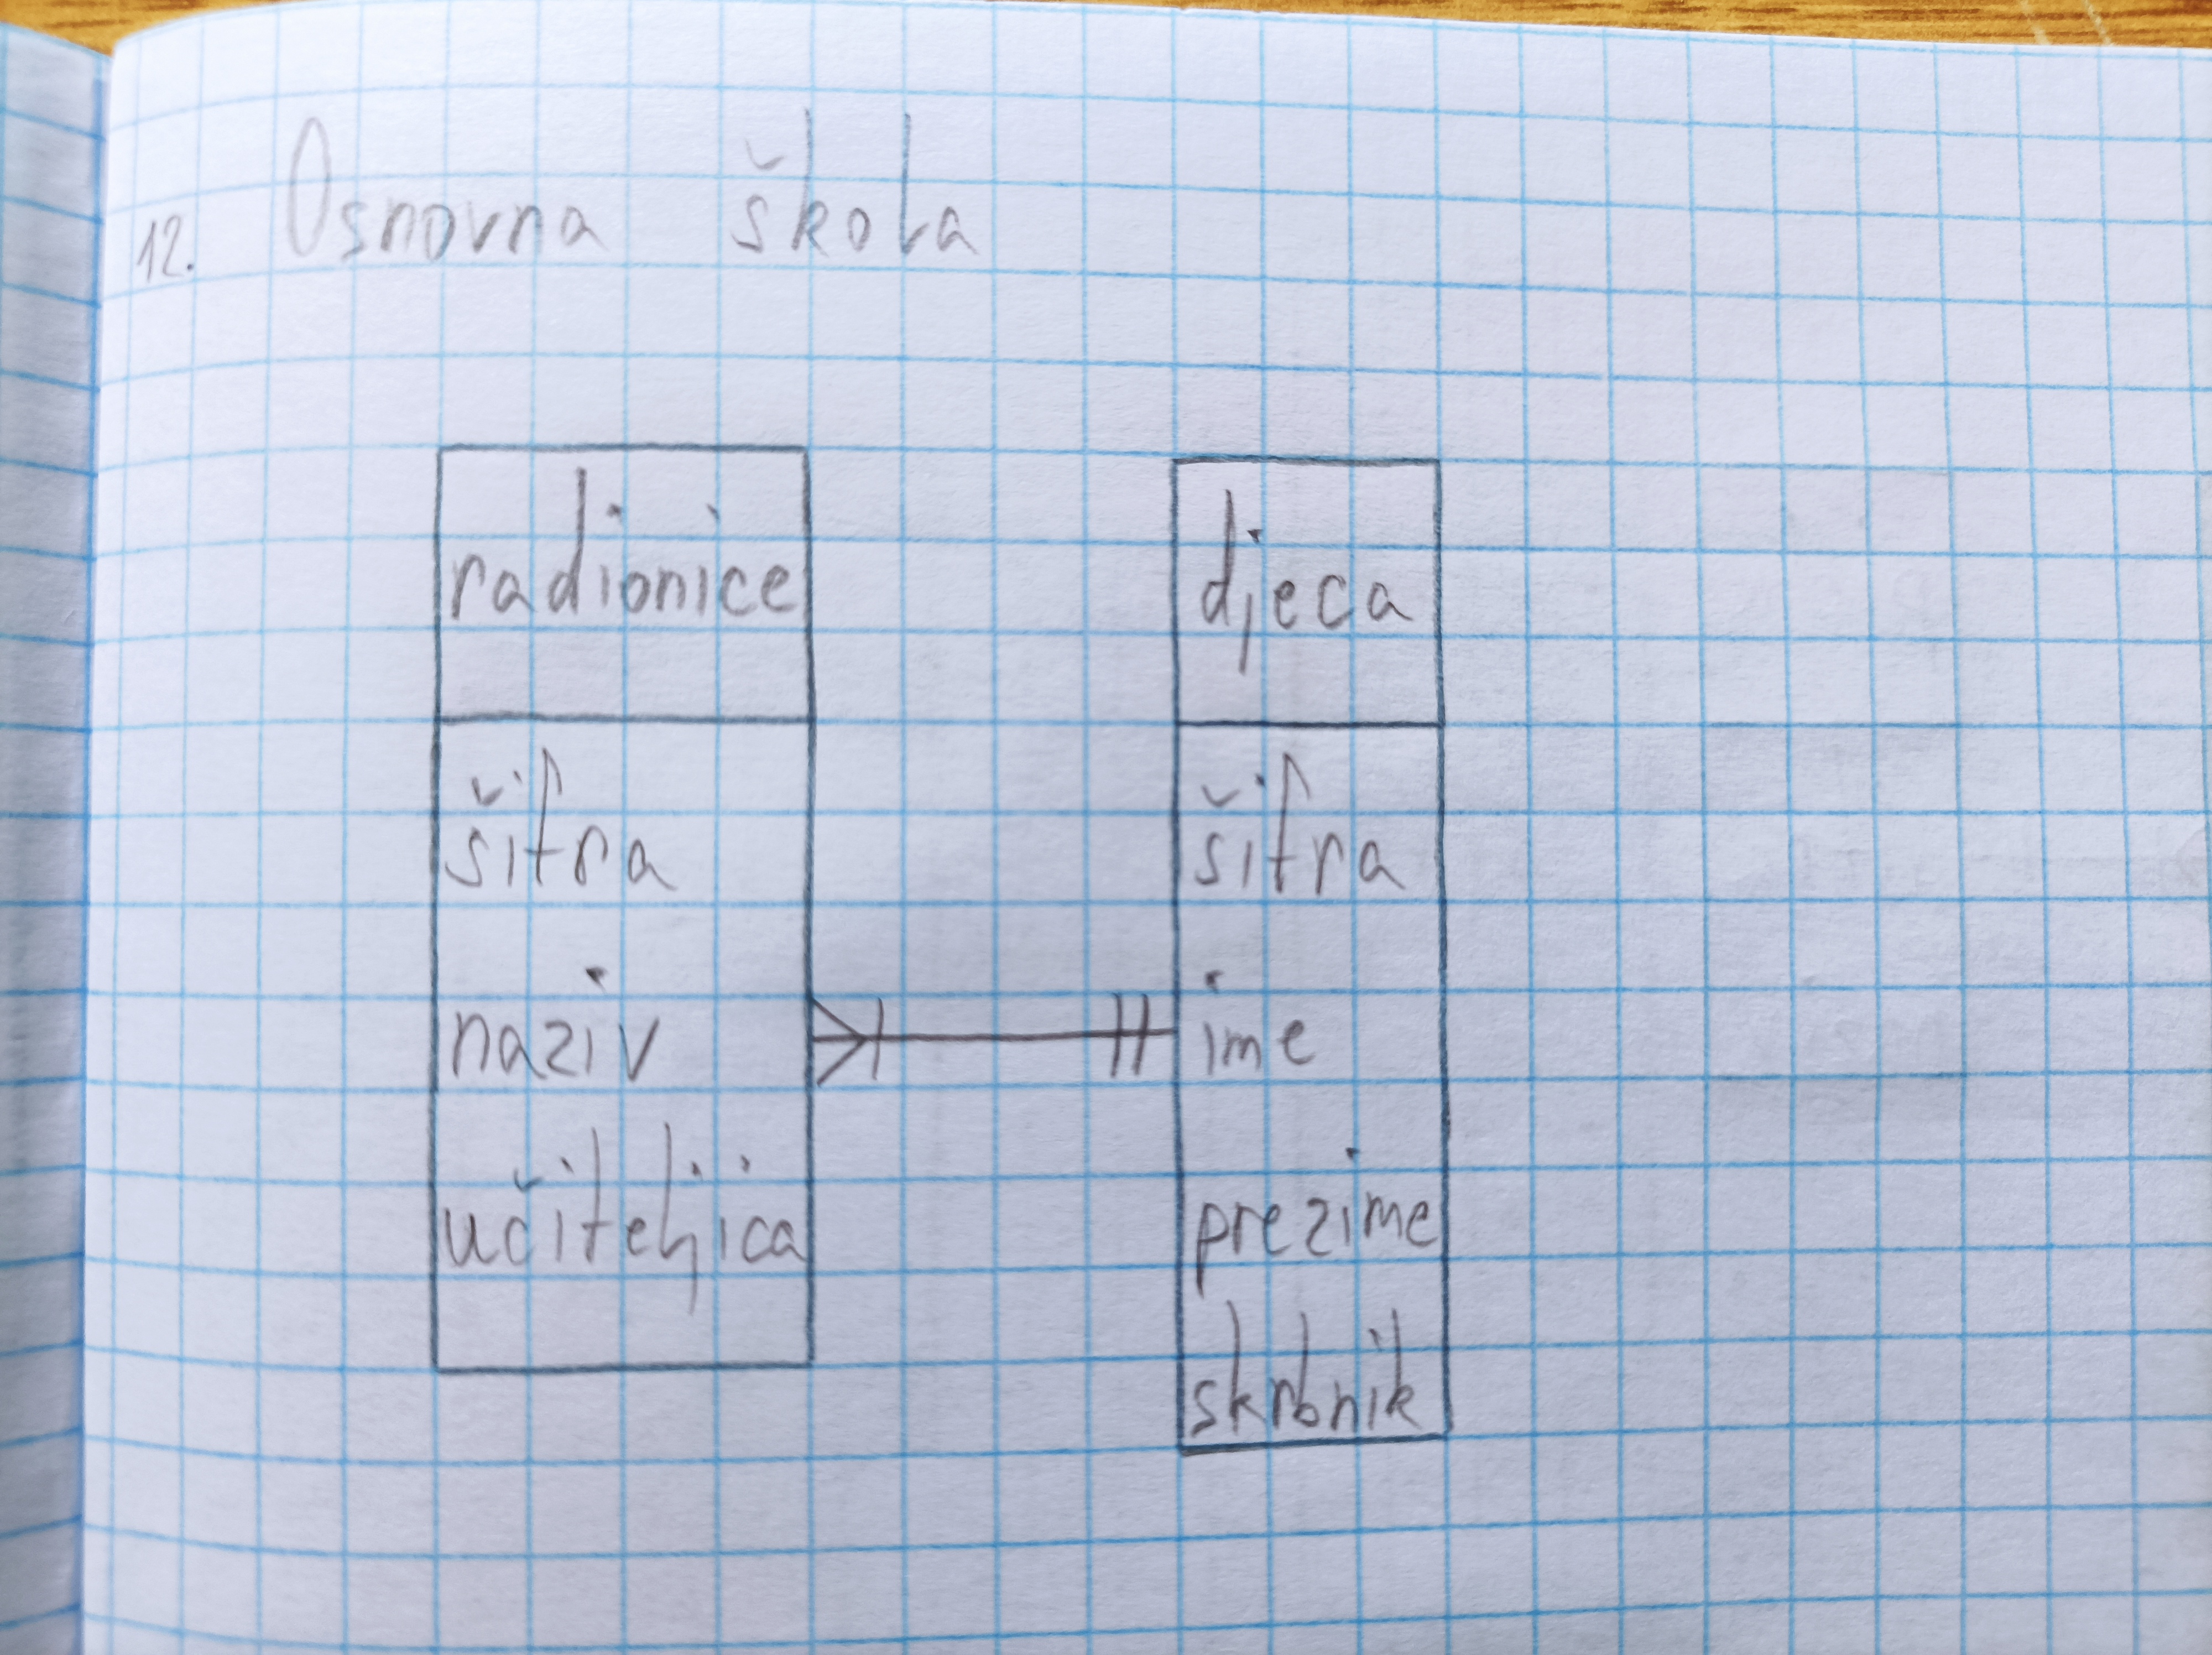 12. Osnovna škola
radionice
šifra
naziv
učiteljica
djeca
šifra
ime
prezime
skrbnik